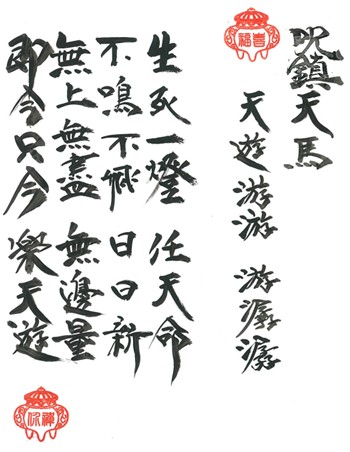 呪鎮天馬
喜福
天遊游游 游
生死一燈 任天命
不鳴不 日日新
無上無盡 無邊量
即今只今 楽天遊